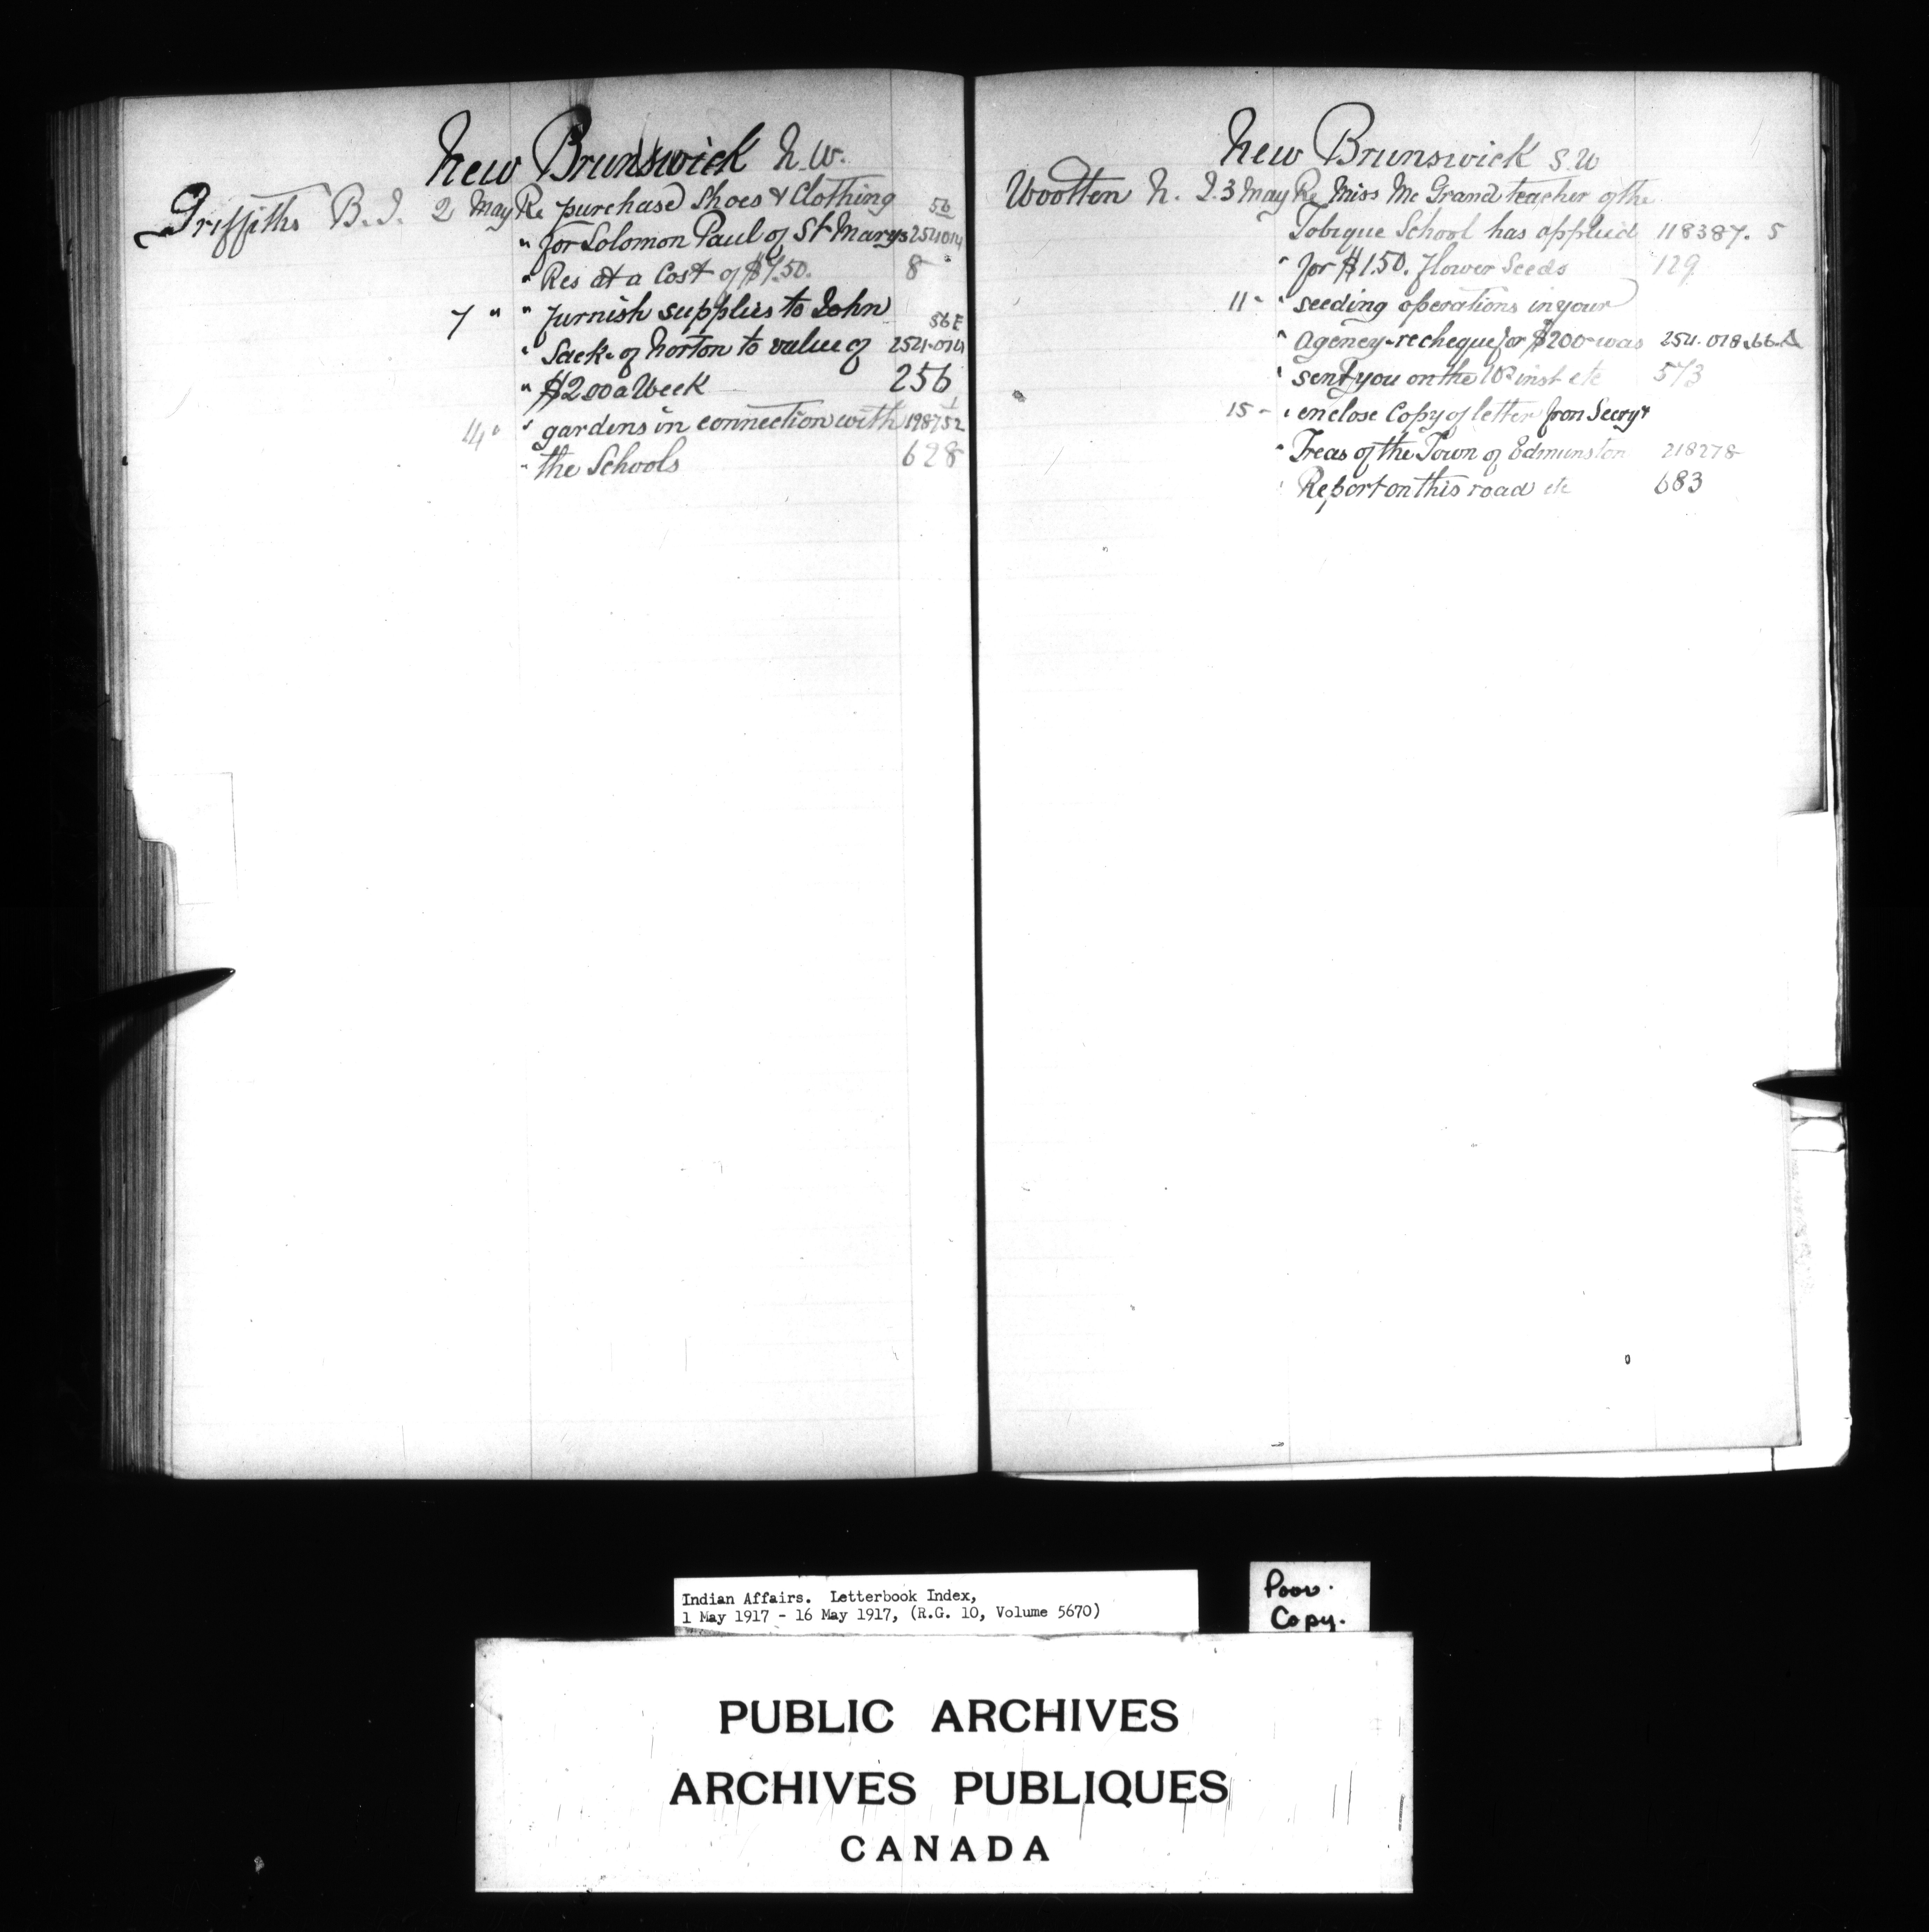 New Brunswick N.W.
Griffiths B.J. 2 May Re purchased Shoes & Clothing 56
" for Solomon Paul of St Marys 254014
" Res at a Cost of $7.50. 8
7 " " furnish supplies to John 56E
" Sack of Norton to value of 254-014
" $2.00 a Week 256
14 " " gardens in connection with 198752 1
" the Schools 628
New Brunswick S.W
Wootten N. J. 3 May Re Miss McGrand teacher of the
Tobique School has applied 118387. 5
" for $1.50. flower Seeds 129
11 " " seeding operations in your
" agency - re cheque for $200 - was 254.018.66-A
" sent you on the 10th inst etc 573
15 - " enclose Copy of letter from Secry &
" Treas of the Town of Edmunston 218278
" Report on this road etc 683
Indian Affairs. Letterbook Index,
1 May 1917 - 16 May 1917, (R.G. 10, Volume 5670)
Poor.
Copy.
PUBLIC ARCHIVES
ARCHIVES PUBLIQUES
CANADA